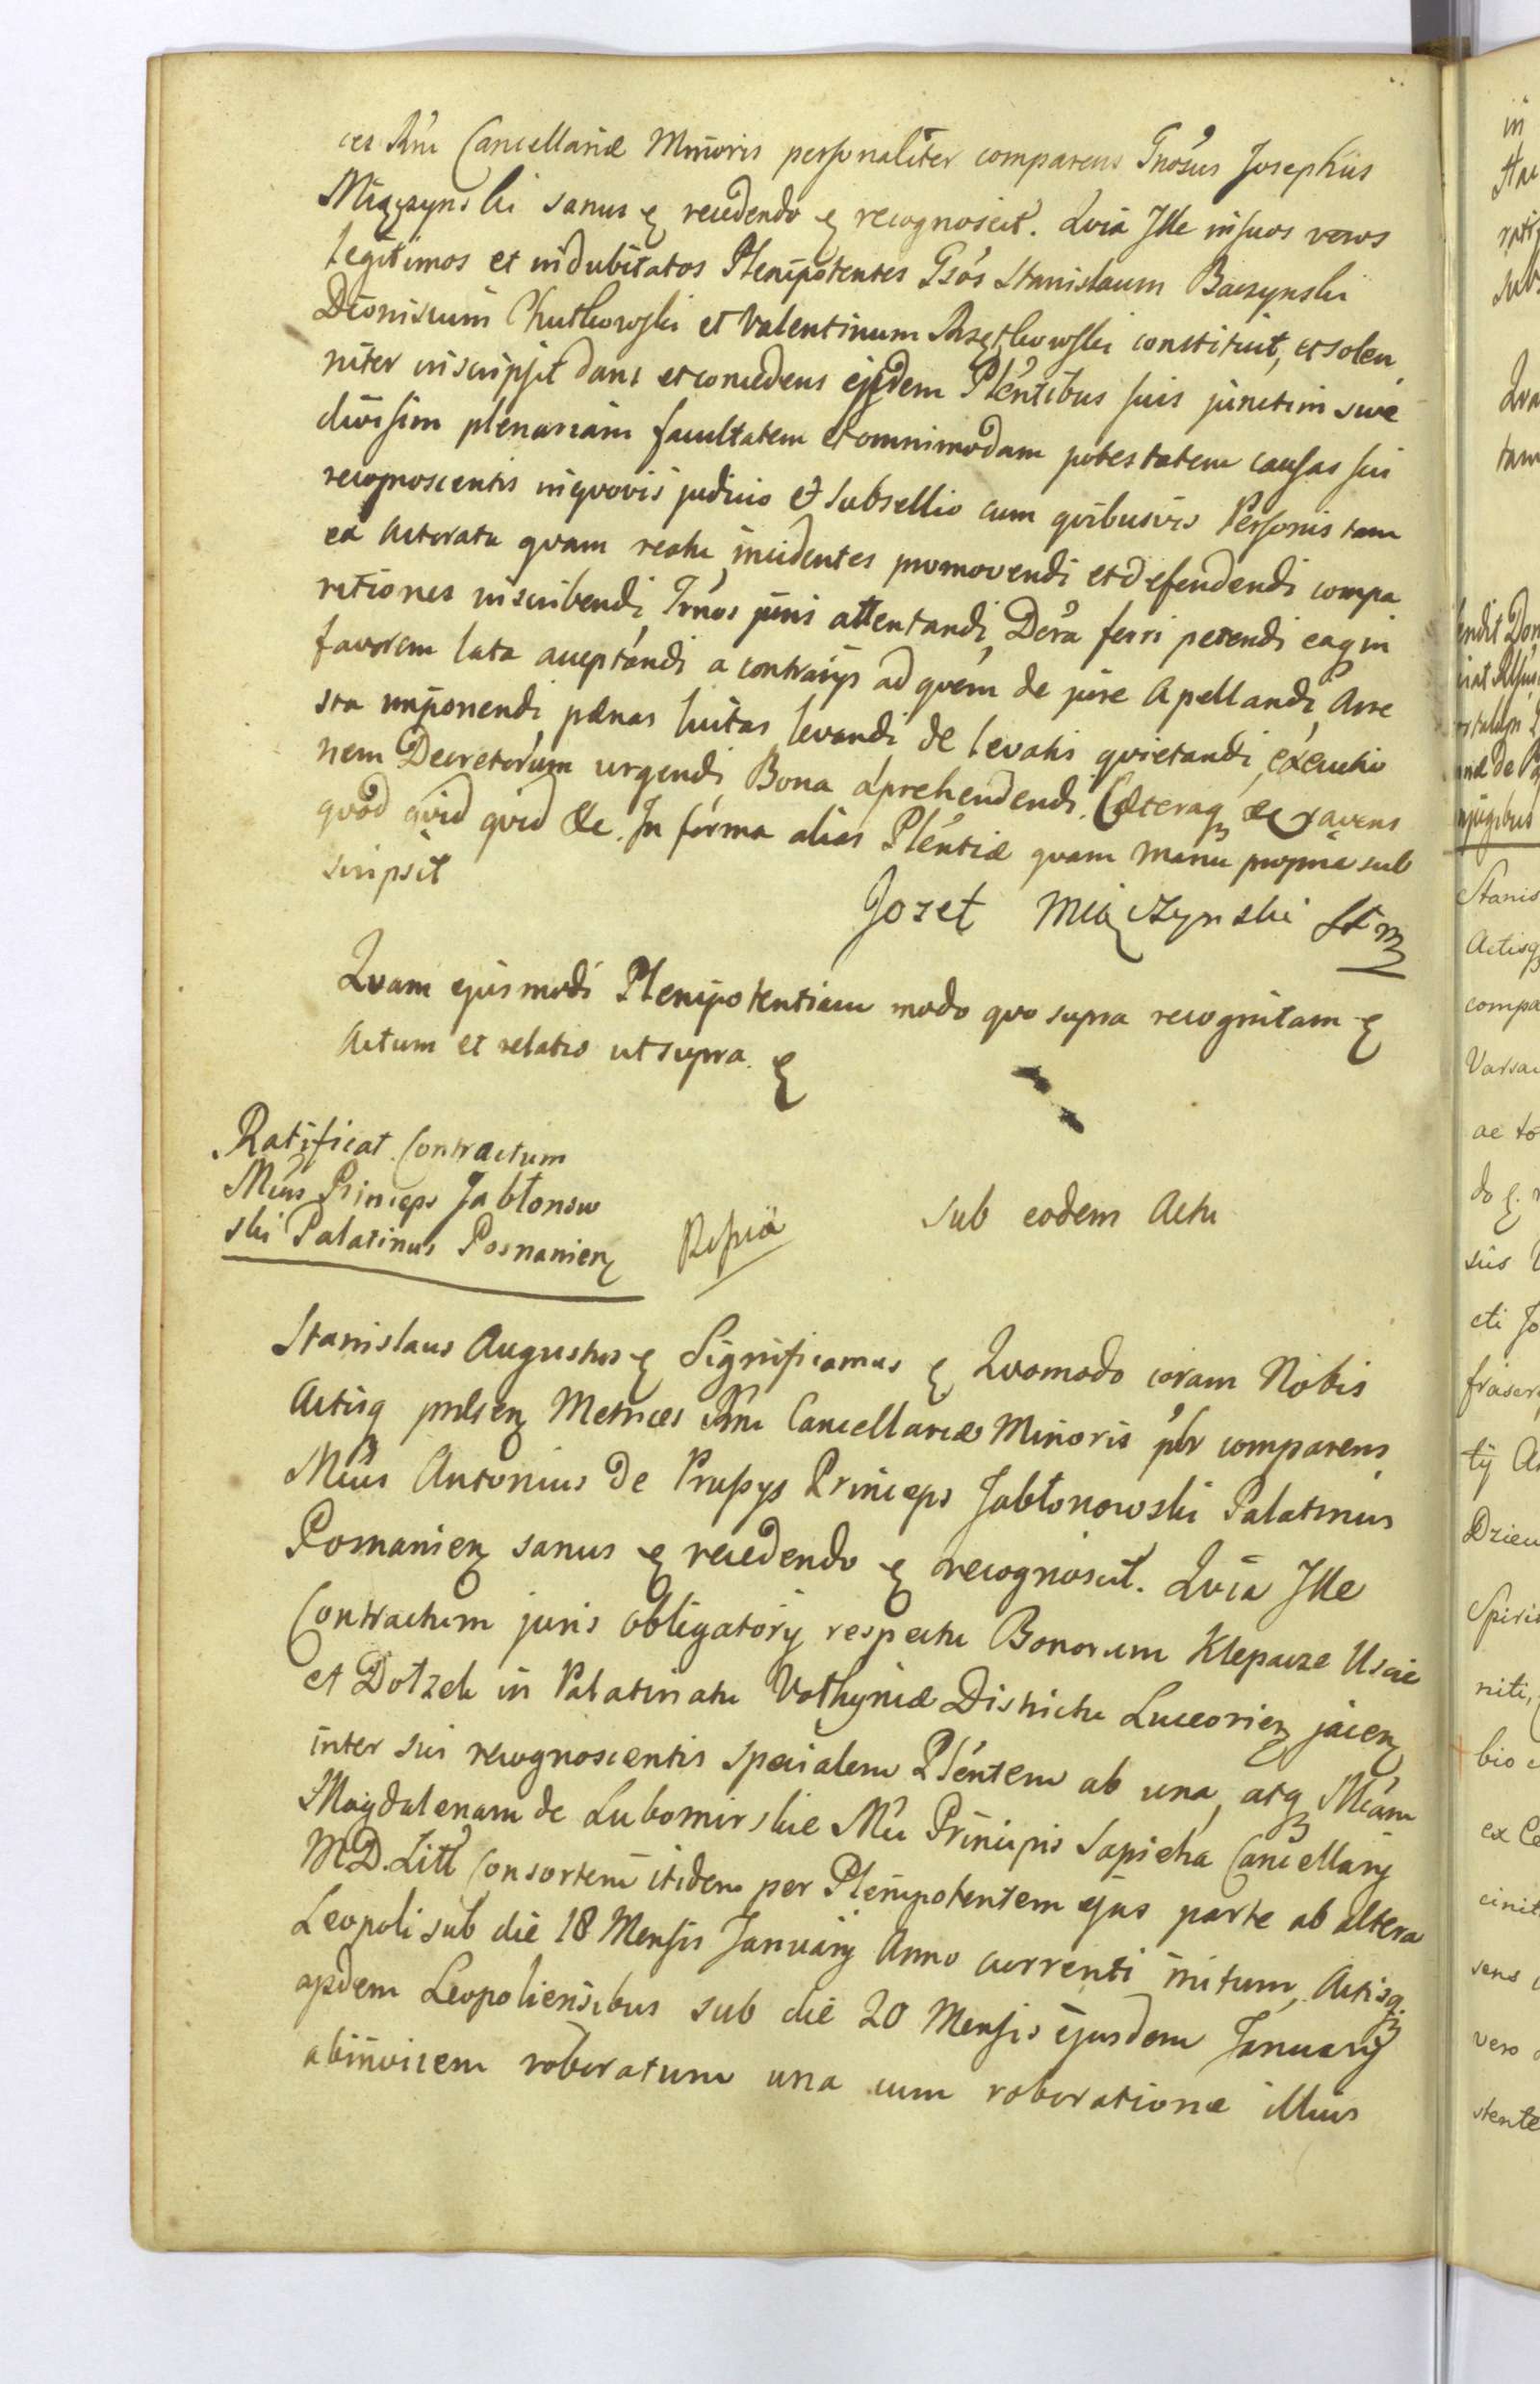 ces Rńi Cancellariæ Minoris personaliter comparens Gnosus Josephus
Miączynski sanus etc recedendo etc recognoscit. Qvia Ille in suos veros
legitimos et indubitatos Plenipotentes Gsós Stanislaum Baczynski
Dionisium Chutkowski et Valentinum constituit, et solen
niter inscripsit dans et concedens ejsdem Plentibus suis junctim sive
divisim plenariam facultatem et omnimodam potestatem causas sui
recognoscentis in qvovis judicio et subsellio cum qvibusvis Personis tam
ex Actoratu qvam reatu incidentes promovendi et defendendi compa
ritiones inscribendi, Trnos juris attentandi, Dcra ferri petendi eaq in
favorem lata acceptandi a contrarijs ad qvem de jure Apellandi, Arre
sta imponendi pænas luitas levandi de levatis qvietandi, executio
nem Decretorum urgendi, Bona aprehendendi. Cæteraq
qvod qvid qvid &c. In forma alias Plentiæ qvam manu propria sub
scripsit
Jozef Miączynski
Qvam ejusmodi Plenipotentiam modo qvo supra recognitam etc
Actum et relatio ut supra. etc
Ratificat Contractum
Mcus Princeps Jabłonow
ski Palatinus Posnanien
sub eodem Actu
Stanislaus Augustus etc Significamus etc Qvomodo coram Nobis
Actisq prdsen Metrices Rńi Cancellariæ Minoris plr comparens
Mcus Antonius de Prussys Princeps Jabłonowski Palatinus
Posnanien sanus etc recedendo etc recognoscit. Qvia Ille
Contractum juris obligatorij respectu Bonorum Klepacze Uscie
et Dołzek in Palatinatu Vołhyniæ Districtu Luceorien jacen
inter sui recognoscentis specialem Plentem ab una, atq Mcam
Magdalenam de Lubomirskie Mci Principis Sapieha Cancellarij
M.D. Litt Consortem itidem per Plenipotentem ejus parte ab altera
Leopoli sub die 18 Mensis Januarij Anno currenti initum, Actisq
apdem Leopoliensibus sub die 20 Mensis ejusdem Januarij
abinvicem roboratum una cum roboratione illius